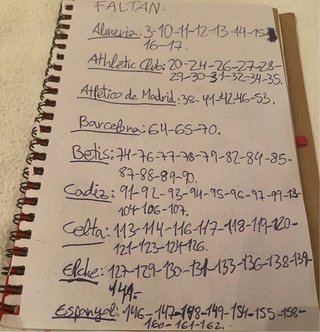 FALTAN:
Almería: 3-10-11-12-13-14-15-
16-17.
Athletic Club: 20-24-26-27-28-
29-30-31-32-34-35.
Atlético de Madrid: 38-41-42-46-53.
Barcelona: 64-65-70.
Betis: 74-76-77-78-79-82-84-85-
87-88-89-90.
Cadiz: 91-92-93-94-95-96-97-99-103-
104-106-107.
Celta: 113-114-116-117-118-119-120-
121-123-124-126.
Elche: 127-129-130-131-133-136-138-139-
141-
Espanyol: 146-147-148-149-154-155-158-
160-161-162.